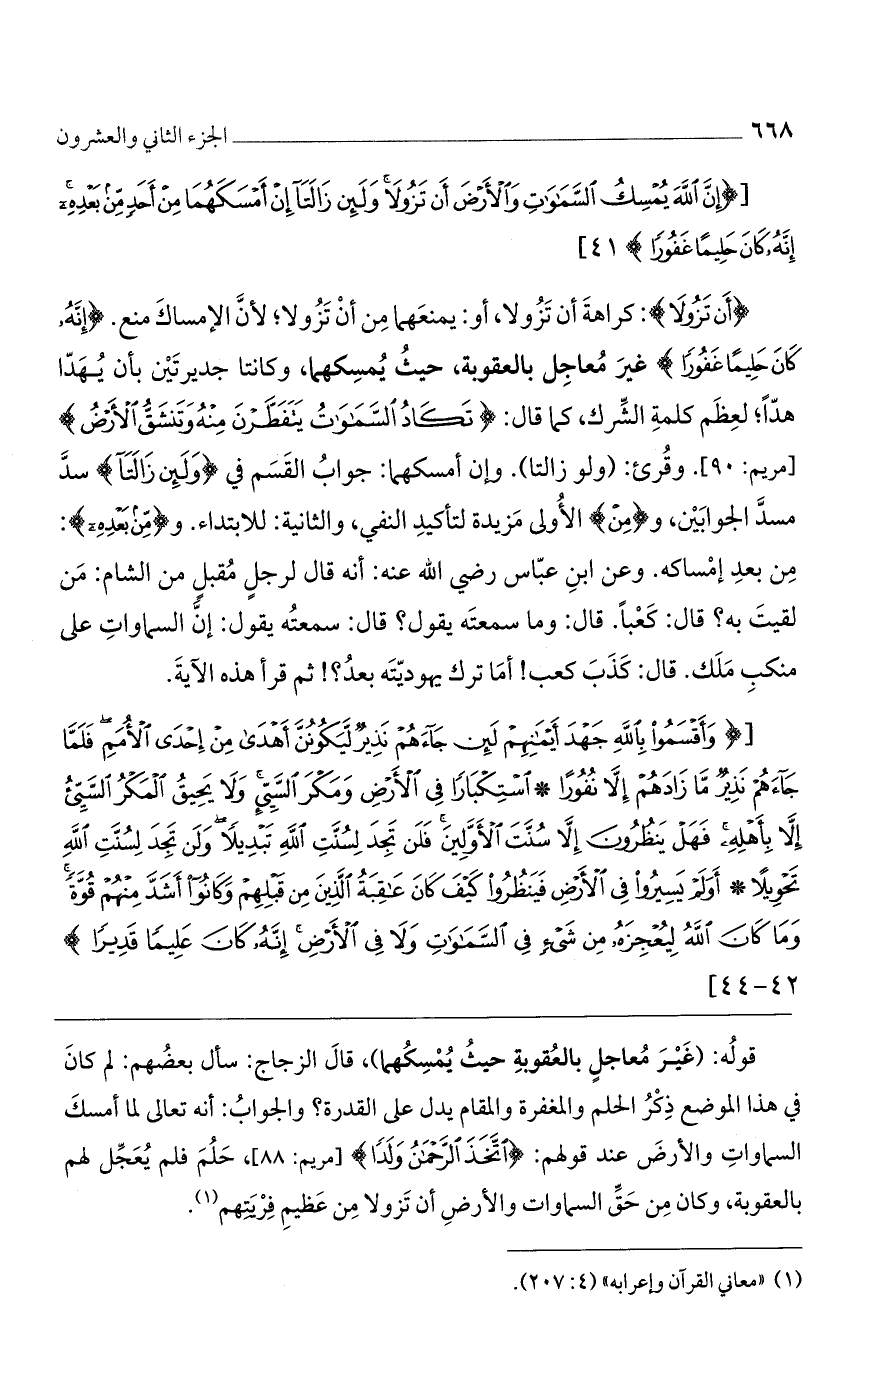 ٦٦٨ الجزء الثاني والعشرون
[﴿إِنَّ ٱللَّهَ يُمْسِكُ ٱلسَّمَٰوَٰتِ وَٱلْأَرْضَ أَن تَزُولَا ۚ وَلَئِن زَالَتَآ إِنْ أَمْسَكَهُمَا مِنْ أَحَدٍ مِّنۢ بَعْدِهِۦٓ ۚ
إِنَّهُۥ كَانَ حَلِيمًا غَفُورًا ﴾ ٤١]
﴿أَن تَزُولَا﴾: كراهةَ أن تَزُولا، أو: يمنعَهما مِن أنْ تَزُولا؛ لأنَّ الإمساكَ منع. ﴿إِنَّهُۥ
كَانَ حَلِيمًا غَفُورًا ﴾ غيرَ مُعاجِل بالعقوبة، حيثُ يُمسِكهما، وكانتا جديرتَيْن بأن يُـهَدّا
هدّاً؛ لعِظَم كلمةِ الشِّرك، كما قال: ﴿ تَكَادُ ٱلسَّمَٰوَٰتُ يَتَفَطَّرْنَ مِنْهُ وَتَنشَقُّ ٱلْأَرْضُ ﴾
[مريم: ٩٠]. وقُرئ: (ولو زالتا). وإن أمسكهما: جوابُ القَسَم في ﴿وَلَئِن زَالَتَآ﴾ سدَّ
مسدَّ الجوابَيْن، و﴿مِنْ﴾ الأُولى مَزيدة لتأكيدِ النفي، والثانية: للابتداء. و﴿مِّنۢ بَعْدِهِۦ﴾:
مِن بعدِ إمْساكه. وعن ابنِ عبّاس رضي الله عنه: أنه قال لرجلٍ مُقبلٍ من الشام: مَن
لقيتَ به؟ قال: كَعْباً. قال: وما سمعتَه يقول؟ قال: سمعتُه يقول: إنَّ السماواتِ على
منكبِ مَلَك. قال: كَذَبَ كعب! أمَا ترك يهوديّتَه بعدُ؟! ثم قرأ هذه الآيةَ.
[﴿ وَأَقْسَمُوا۟ بِٱللَّهِ جَهْدَ أَيْمَٰنِهِمْ لَئِن جَآءَهُمْ نَذِيرٌ لَّيَكُونُنَّ أَهْدَىٰ مِنْ إِحْدَى ٱلْأُمَمِ ۖ فَلَمَّا
جَآءَهُمْ نَذِيرٌ مَّا زَادَهُمْ إِلَّا نُفُورًا * ٱسْتِكْبَارًا فِى ٱلْأَرْضِ وَمَكْرَ ٱلسَّيِّئِ ۚ وَلَا يَحِيقُ ٱلْمَكْرُ ٱلسَّيِّئُ
إِلَّا بِأَهْلِهِۦ ۚ فَهَلْ يَنظُرُونَ إِلَّا سُنَّتَ ٱلْأَوَّلِينَ ۚ فَلَن تَجِدَ لِسُنَّتِ ٱللَّهِ تَبْدِيلًا ۖ وَلَن تَجِدَ لِسُنَّتِ ٱللَّهِ
تَحْوِيلًا * أَوَلَمْ يَسِيرُوا۟ فِى ٱلْأَرْضِ فَيَنظُرُوا۟ كَيْفَ كَانَ عَٰقِبَةُ ٱلَّذِينَ مِن قَبْلِهِمْ وَكَانُوٓا۟ أَشَدَّ مِنْهُمْ قُوَّةً ۚ
وَمَا كَانَ ٱللَّهُ لِيُعْجِزَهُۥ مِن شَىْءٍ فِى ٱلسَّمَٰوَٰتِ وَلَا فِى ٱلْأَرْضِ ۚ إِنَّهُۥ كَانَ عَلِيمًا قَدِيرًا ﴾
٤٢-٤٤]
قولُه: (غَيْـرَ مُعاجلٍ بالعُقوبةِ حيثُ يُمْسِكُهما)، قالَ الزجاج: سأل بعضُهم: لم كانَ
في هذا الموضع ذِكْرُ الحلم والمغفرة والمقام يدل على القدرة؟ والجوابُ: أنه تعالى لما أمسكَ
السماواتِ والأرضَ عند قولهم: ﴿ٱتَّخَذَ ٱلرَّحْمَٰنُ وَلَدًا﴾ [مريم: ٨٨]، حَلُمَ فلم يُعَجِّل لهم
بالعقوبة، وكان مِن حَقِّ السماوات والأرضِ أن تَزولا مِن عَظيمِ فِرْيَتِهم(١).
(١) «معاني القرآن وإعرابه» (٤: ٢٠٧).